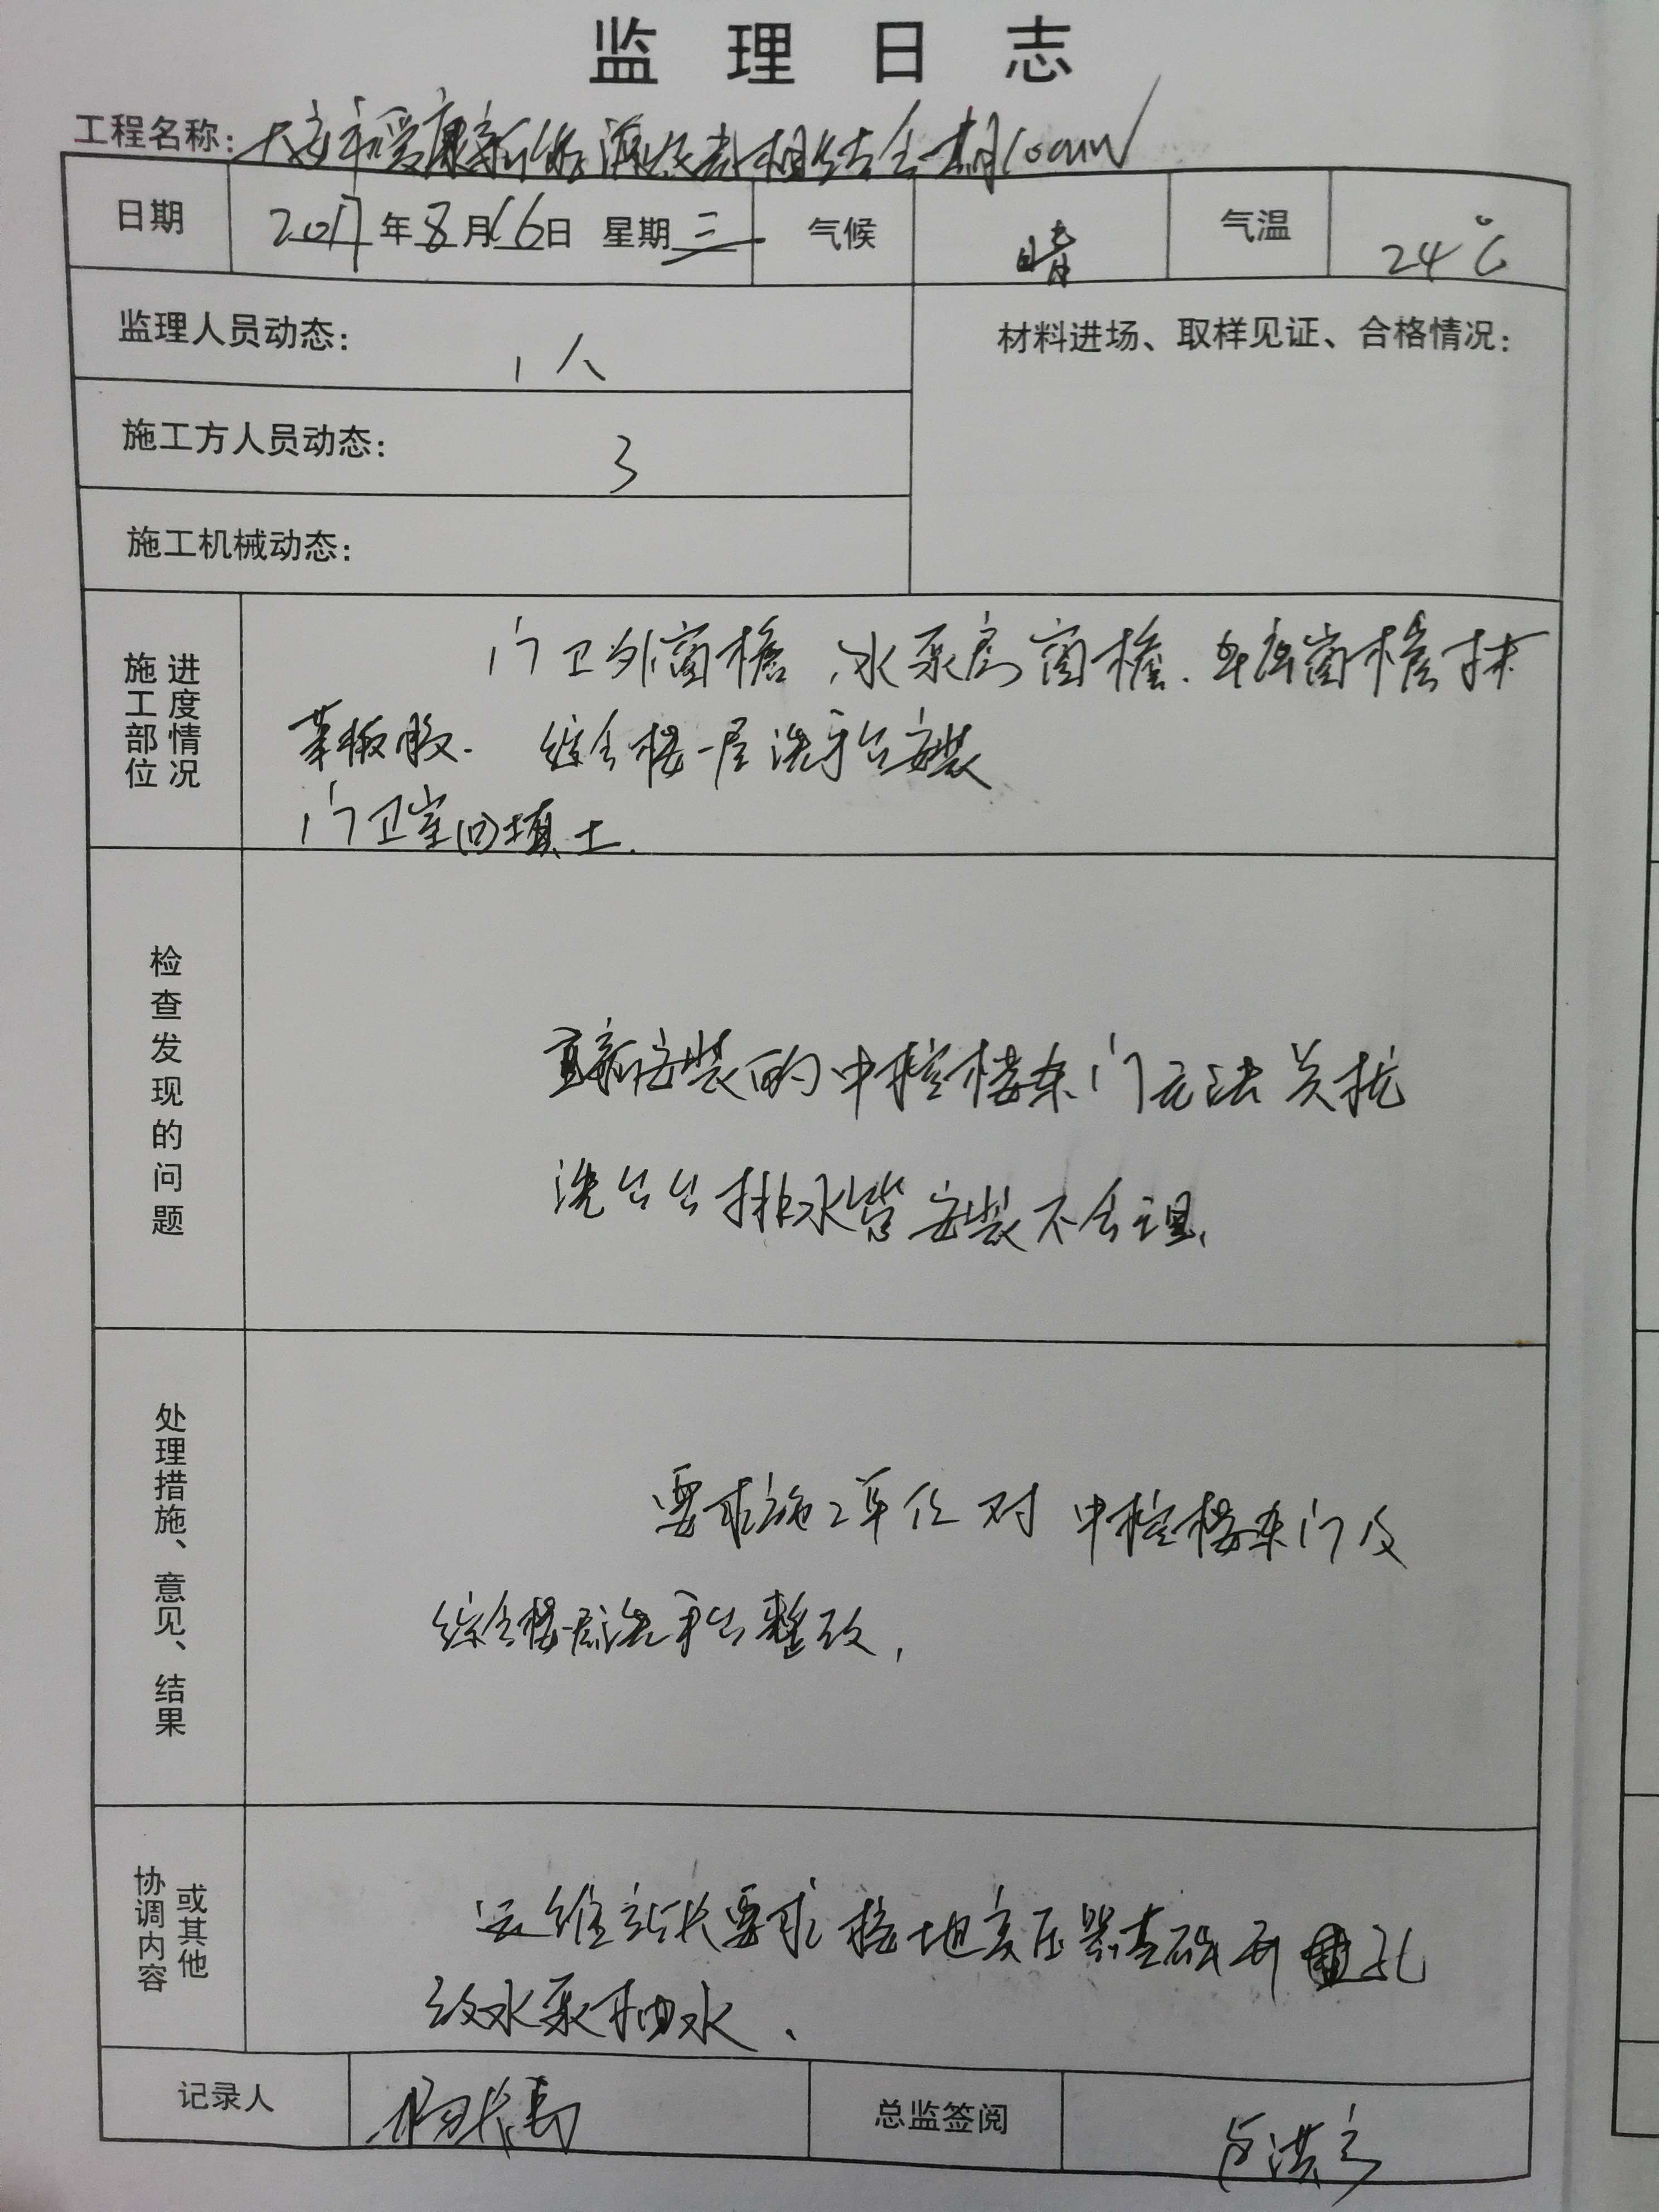 监理日志
工程名称：大安市爱康新能源农光相结合一期100MW
日期 2017年8月16日 星期三 气候 晴 气温 24℃
监理人员动态： 1人
材料进场、取样见证、合格情况：
施工方人员动态： 3
施工机械动态：
施工部位 进度情况
门卫外窗檐，水泵房窗檐、车库窗檐抹
苯板胶. 综合楼一层洗手台安装
门卫室回填土.
检查发现的问题
重新安装的中控楼东门无法关拢
洗台台排水管安装不合理、
处理措施、意见、结果
要求施工单位对中控楼东门及
综合楼一层洗手台整改，
协调内容 或其他
运维站长要求接地变压器基础开孔
放水泵抽水、
记录人
总监签阅